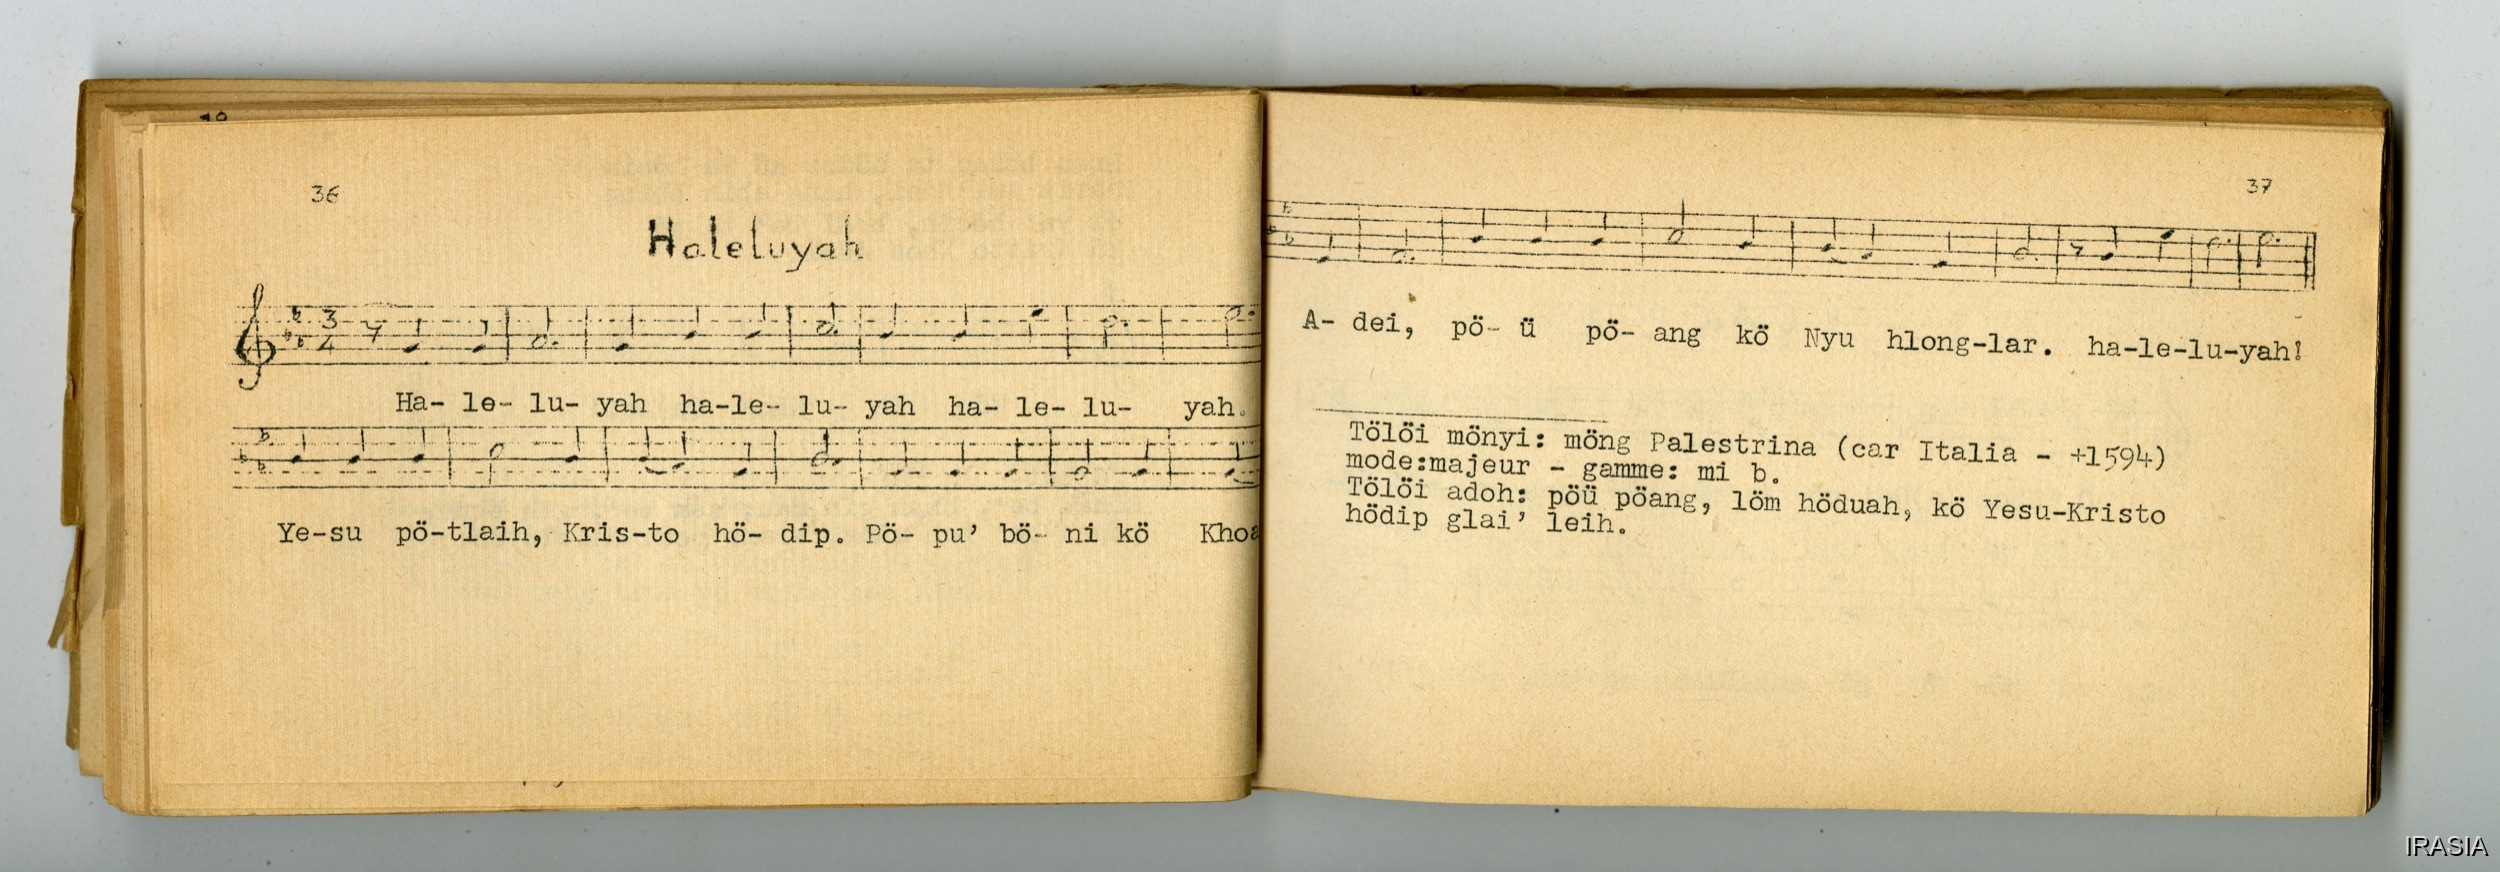 36
Haleluyah
3
4
Ha- le- lu- yah ha-le- lu- yah ha- le- lu- yah.
Ye-su pö-tlaih, Kris-to hö- dip. Pö- pu' bö- ni kö Khoa
37
A- dei, pö- ü pö- ang kö Nyu hlong-lar. ha-le-lu-yah!
Tölöi mönyi: möng Palestrina (car Italia - +1594)
mode:majeur - gamme: mi b.
Tölöi adoh: pöü pöang, löm höduah, kö Yesu-Kristo
hödip glai' leih.
IRASIA